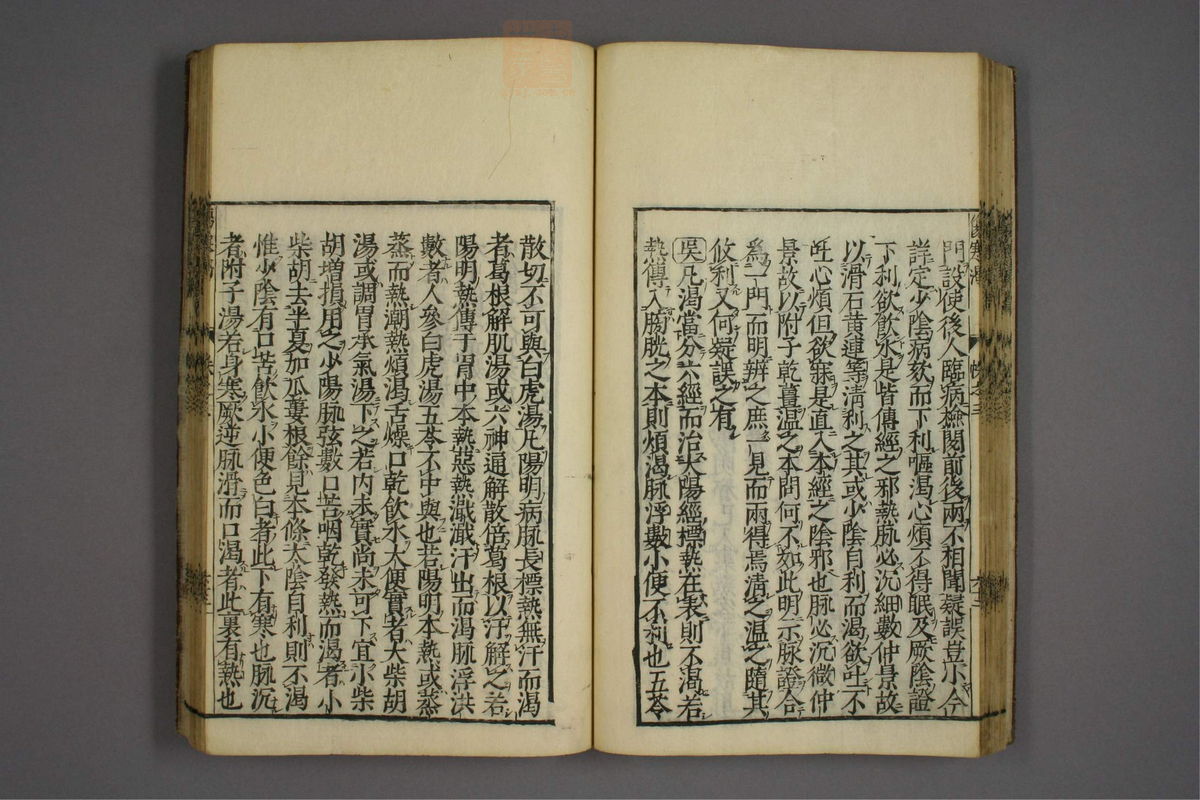 門設使後人臨病檢閱前後兩不相聞疑誤豈小今
詳定少陰病欬而下利嘔渴心煩不得眠及厥陰證
下利欲飲水是皆傳經之邪熱脉必沉細數仲景故
以滑石黃連等清利之其或少陰自利而渴欲吐不
吐心煩但欲寐是直入本經之陰邪也脉必沉微仲
景故以附子乾薑溫之本問何不如此明示脉證合
爲一門而明辨之庶一見而兩得焉清之溫之隨其
攸利又何疑誤之有
吳凡渴當分六經而治太陽經標熱在表則不渴若
熱傳入膀胱之本則煩渴脉浮數小便不利也五苓
散切不可與白虎湯凡陽明病脉長標熱無汗而渴
者葛根解肌湯或六神通解散倍葛根以汗解之若
陽明熱傳于胃中本熱惡熱濈濈汗出而渴脉浮洪
數者人參白虎湯五苓不中與也若陽明本熱或蒸
蒸而熱潮熱煩渴舌燥口乾飲水大便實者大柴胡
湯或調胃承氣湯下之若內未實尚未可下宜小柴
胡增損用之少陽脉弦數口苦咽乾發熱而渴者小
柴胡去半夏加瓜蔞根餘見本條太陰自利則不渴
惟少陰有口苦飲水小便色白者此下有寒也脉沉
者附子湯若身寒厥逆脉滑而口渴者此裏有熱也